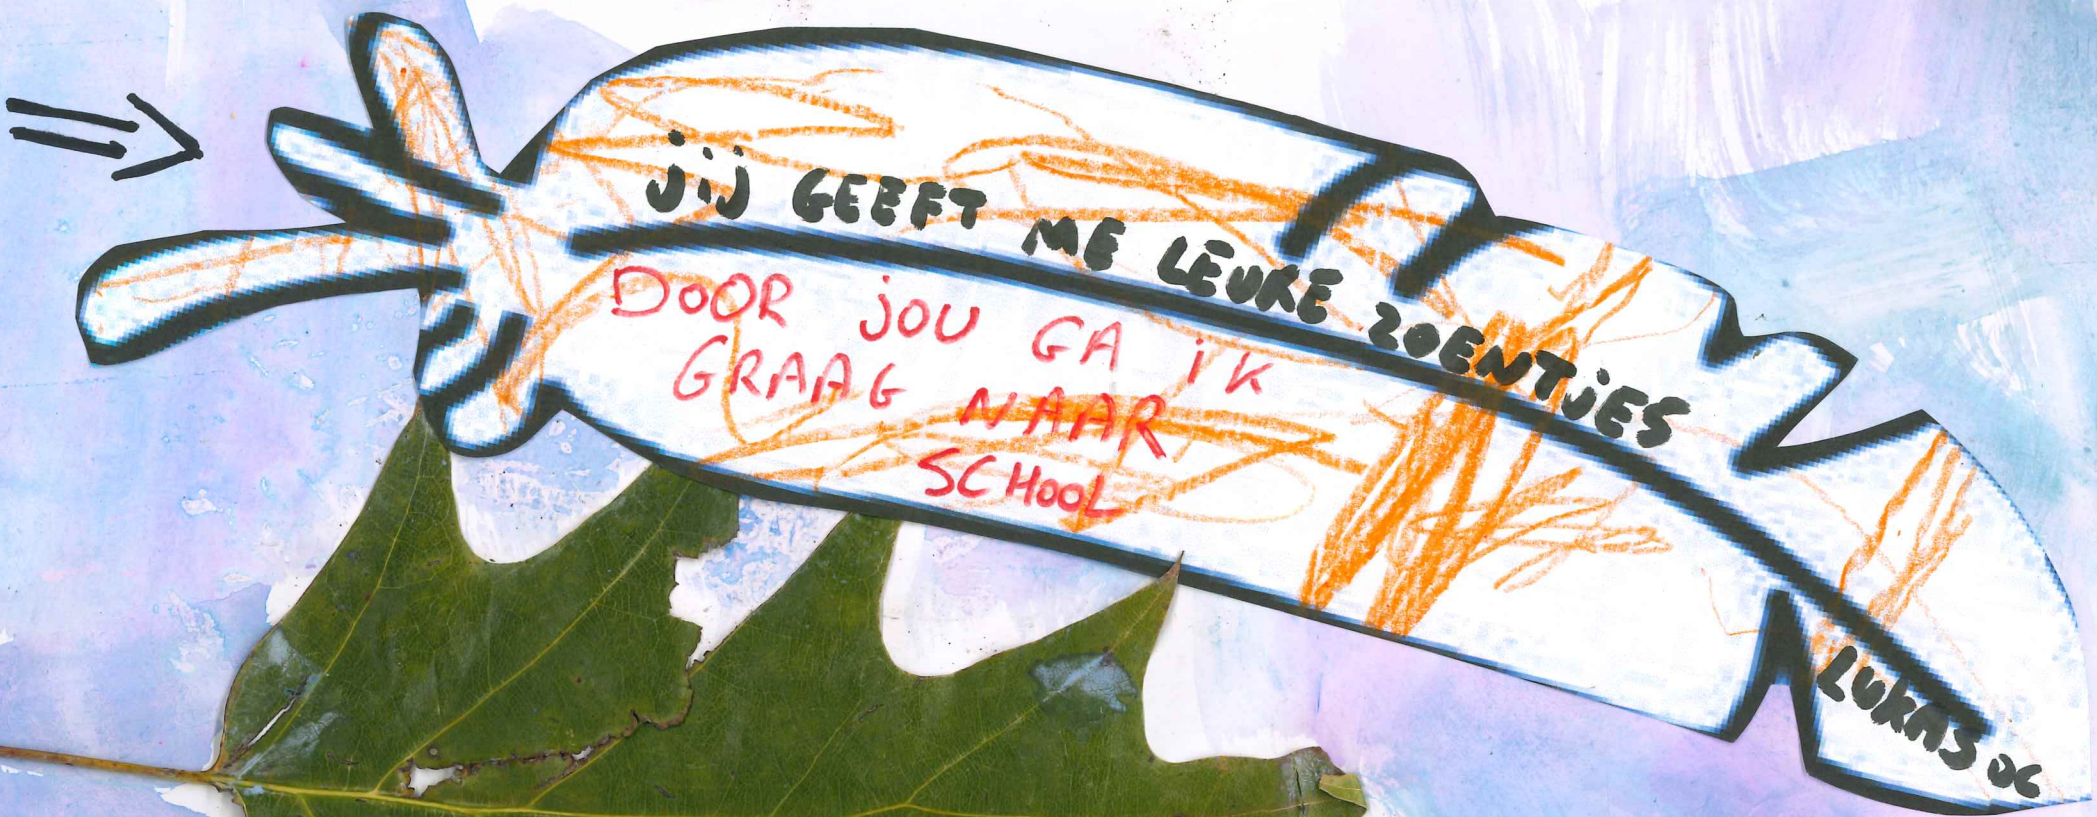 jij GEEFT ME LEUKE ZOENTjES
DOOR jOU GA iK
GRAAG NAAR
SCHOOL
LUKAS DC